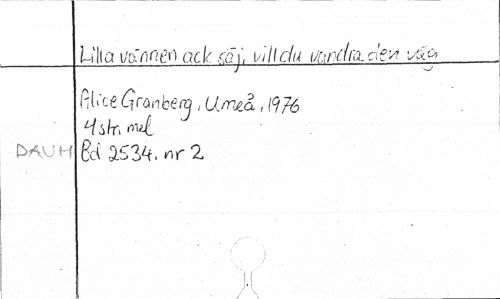 Lilla vännen ack säj, vill du vandra den väg
Alice Granberg, Umeå, 1976
4 str. mel
DAUM Bd 2534. nr 2